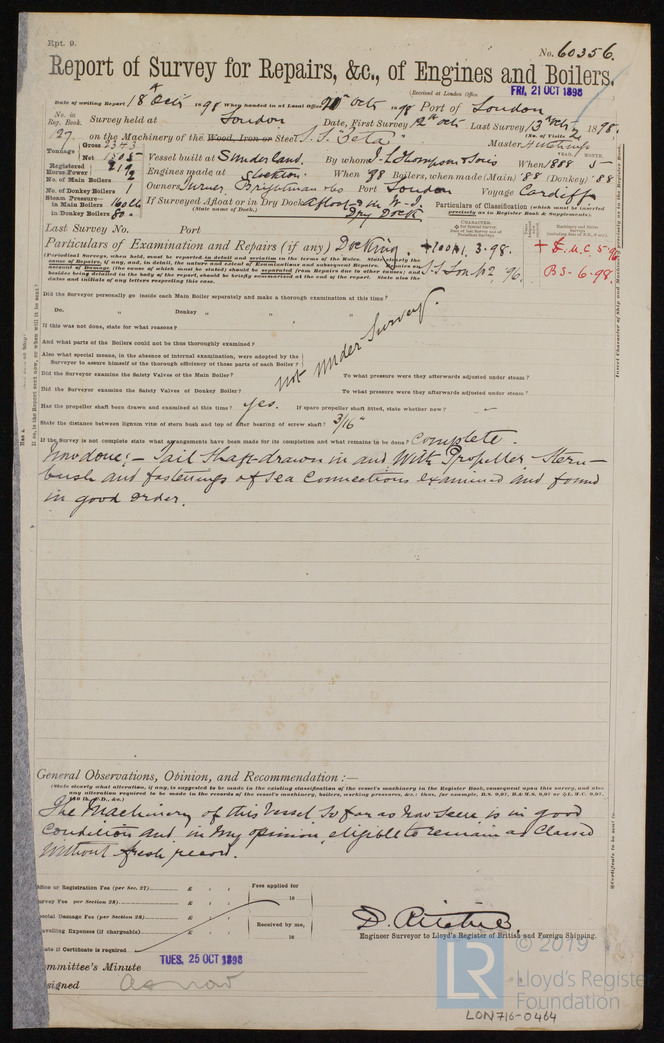 Rpt. 9.
No. 60356.
Report of Survey for Repairs, &c., of Engines and Boilers.
(Received at London Office FRI, 21 OCT 1898
Date of writing Report 18th Oct 1898 When handed in at Local Office Oct 1898 Port of London
No. in Reg. Book. Survey held at London Date, First Survey 12th Oct Last Survey 13th Oct 1898.
(No. of Visits 2
127 on the Machinery of the Wood, Iron or Steel S.S. "Zeta" Master
Tonnage Gross 2343 Net 1505 Vessel built at Sunderland. By whom J. L. Thompson & Sons When 1888 5
YEAR. MONTH.
Registered Horse Power 212 Engines made at Stockton. When 88 Boilers, when made (Main) '88 (Donkey) '88
No. of Main Boilers 2
No. of Donkey Boilers 1 Owners Turner, Brightman & Co Port London Voyage Cardiff
Steam Pressure in Main Boilers 160 lb If Surveyed Afloat or in Dry Dock afloat & in W. I. Dry Dock
(State name of Dock.)
in Donkey Boilers 80
Particulars of Classification (which must be inserted precisely as in Register Book & Supplements).
Last Survey No. Port
Particulars of Examination and Repairs (if any) Docking.
+100A1. 3.98.
S.S. Lon. No 2, 96.
+ L.M.C 5-96
B S - 6 - 98.
(Periodical Surveys, when held, must be reported in detail and seriatim in the terms of the Rules. State clearly the
cause of Repairs, if any, and, in detail, the nature and extent of Examinations and subsequent Repairs. Repairs on
account of Damage (the cause of which must be stated) should be separated from Repairs due to other causes; and
besides being detailed in the body of the report, should be briefly summarized at the end of the report. State also the
dates and initials of any letters respecting this case.
Did the Surveyor personally go inside each Main Boiler separately and make a thorough examination at this time?
Do. " Donkey " " "
If this was not done, state for what reasons?
And what parts of the Boilers could not be thus thoroughly examined?
Also what special means, in the absence of internal examination, were adopted by the
Surveyor to assure himself of the thorough efficiency of those parts of each Boiler?
not under Survey.
Did the Surveyor examine the Safety Valves of the Main Boiler? To what pressure were they afterwards adjusted under steam?
Did the Surveyor examine the Safety Valves of Donkey Boiler? To what pressure were they afterwards adjusted under steam?
Has the propeller shaft been drawn and examined at this time? yes. If spare propeller shaft fitted, state whether new? –
State the distance between lignum vitæ of stern bush and top of after bearing of screw shaft? 3/16"
If the Survey is not complete state what arrangements have been made for its completion and what remains to be done? Complete.
Now done:- Tail Shaft drawn in and with Propeller, Stern-
bush and fastenings of Sea Connections examined and found
in good order.
General Observations, Opinion, and Recommendation :—
(State clearly what alteration, if any, is suggested to be made in the existing classification of the vessel's machinery in the Register Book, consequent upon this survey, and also
any alteration required to be made in the records of the vessel's machinery, boilers, working pressures, &c.: thus, for example, B.S. 9,97, B.&M.S. 9,97 or L.M.C. 9,97,
The Machinery of this Vessel so far as now seen is in good
Condition and in my opinion, eligible to remain as Classed
without fresh record.
Office or Registration Fee (per Sec. 27) £ : : Fees applied for
Survey Fee per Section 28) £ : : 18
Special Damage Fee (per Section 28) £ : :
Travelling Expenses (if chargeable) £ : : Received by me,
18
State if Certificate is required
D. Ritchie
Engineer Surveyor to Lloyd's Register of British and Foreign Shipping.
Committee's Minute TUES. 25 OCT 1898
Assigned as now
© 2019
LR
Lloyd's Register
Foundation
LON716-0464